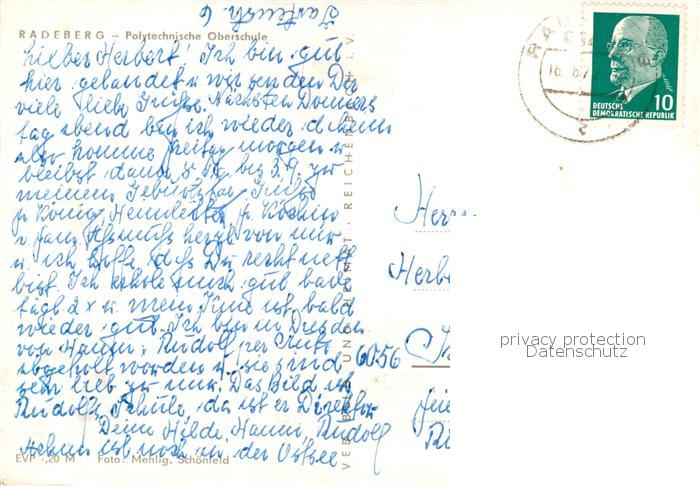 Gartenstr. 6
RADEBERG – Polytechnische Oberschule
Lieber Herbert! Ich bin gut
hier gelandet u. wir senden Dir
viele liebe Grüße. Nächsten Donners
tag abend bin ich wieder daheim
also komme Freitag morgen u.
bleibst dann bis 3.9. zu
meinem Geburtstag. Grüße
Fr. König, Fr.
u. Fam. herzl. von mir
u. ich hoffe, daß Du recht nett
bist. Ich erhole mich gut bade
tägl. 2 x u. mein Knie ist bald
wieder gut. Ich bin in Dresden
von Hanni, Rudolf per Auto
abgeholt worden u. sie sind
sehr lieb zu mir. Das Bild ist
Rudolfs Schule, da ist er Direktor
Deine Hilde, Hanni, Rudolf
ist noch an der Ostsee
EVP -,20 M Foto: Mehlig, Schönfeld
VERLAG BILD UND HEIMAT · REICHENBACH I. V.
RAD
18. 8. 7
2
DEUTSCHE
DEMOKRATISCHE REPUBLIK
10
Herr
Herb
6056
privacy protection
Datenschutz